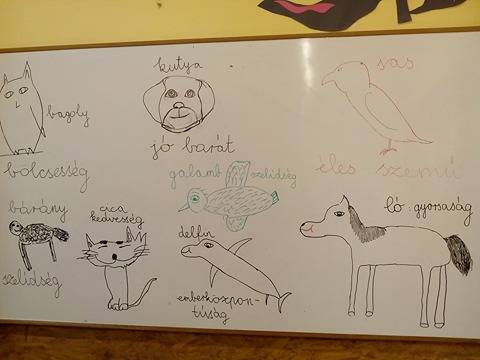 bagoly
bölcsesség
kutya
jó barát
sas
éles szemű
galamb szelídség
bárány
szelídség
cica
kedvesség
delfin
emberközpon-
túság
ló: gyorsaság